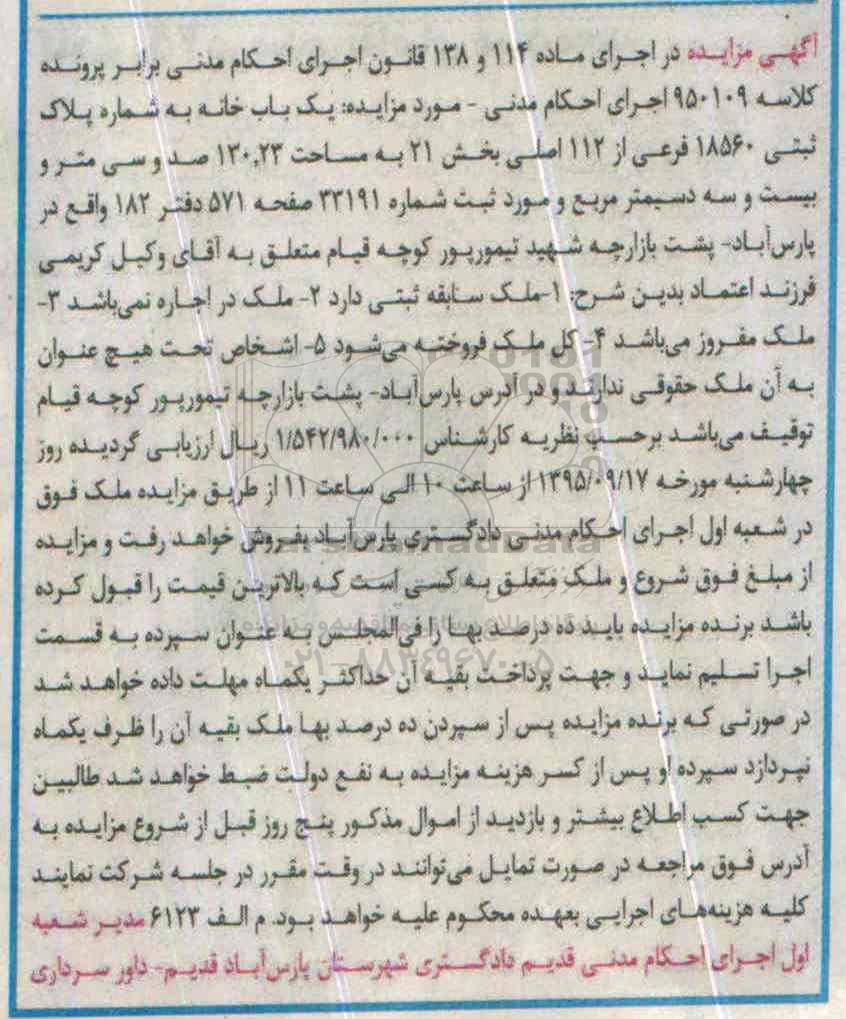 آگهی مزایده در اجرای ماده ۱۱۴ و ۱۳۸ قانون اجرای احکام مدنی برابر پرونده
کلاسه ۹۵۰۱۰۹ اجرای احکام مدنی - مورد مزایده: یک باب خانه به شماره پلاک
ثبتی ۱۸۵۶۰ فرعی از ۱۱۲ اصلی بخش ۲۱ به مساحت ۱۳۰,۲۳ صد و سی متر و
بیست و سه دسیمتر مربع و مورد ثبت شماره ۳۳۱۹۱ صفحه ۵۷۱ دفتر ۱۸۲ واقع در
پارس‌آباد- پشت بازارچه شهید تیمورپور کوچه قیام متعلق به آقای وکیل کریمی
فرزند اعتماد بدین شرح: ۱-ملک سابقه ثبتی دارد ۲- ملک در اجاره نمی‌باشد ۳-
ملک مفروز می‌باشد ۴- کل ملک فروخته می‌شود ۵- اشخاص تحت هیچ عنوان
به آن ملک حقوقی ندارند و در آدرس پارس‌آباد- پشت بازارچه تیمورپور کوچه قیام
توقیف می‌باشد برحسب نظریه کارشناس ۱/۵۴۲/۹۸۰/۰۰۰ ریال ارزیابی گردیده روز
چهارشنبه مورخه ۱۳۹۵/۰۹/۱۷ از ساعت ۱۰ الی ساعت ۱۱ از طریق مزایده ملک فوق
در شعبه اول اجرای احکام مدنی دادگستری پارس‌آباد بفروش خواهد رفت و مزایده
از مبلغ فوق شروع و ملک متعلق به کسی است که بالاترین قیمت را قبول کرده
باشد برنده مزایده باید ده درصد بها را فی‌المجلس به عنوان سپرده به قسمت
اجرا تسلیم نماید و جهت پرداخت بقیه آن حداکثر یکماه مهلت داده خواهد شد
در صورتی که برنده مزایده پس از سپردن ده درصد بها ملک بقیه آن را ظرف یکماه
نپردازد سپرده او پس از کسر هزینه مزایده به نفع دولت ضبط خواهد شد طالبین
جهت کسب اطلاع بیشتر و بازدید از اموال مذکور پنج روز قبل از شروع مزایده به
آدرس فوق مراجعه در صورت تمایل می‌توانند در وقت مقرر در جلسه شرکت نمایند
کلیه هزینه‌های اجرایی بعهده محکوم علیه خواهد بود. م الف ۶۱۲۳ مدیر شعبه
اول اجرای احکام مدنی قدیم دادگستری شهرستان پارس‌آباد قدیم- داور سرداری
۰۲۱-۸۸۳۴۹۶۷۰-۵